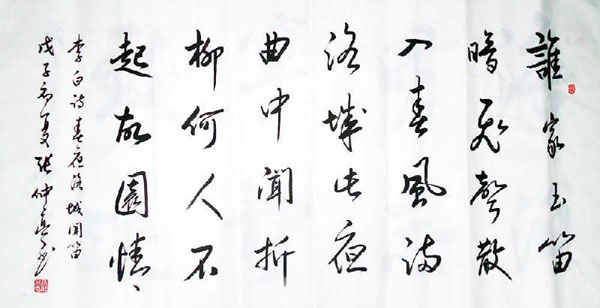 誰家玉笛
暗飛聲散
入春風滿
洛城此夜
曲中聞折
柳何人不
起故園情
李白詩春夜洛城闻笛
戊子初夏張仲亭書